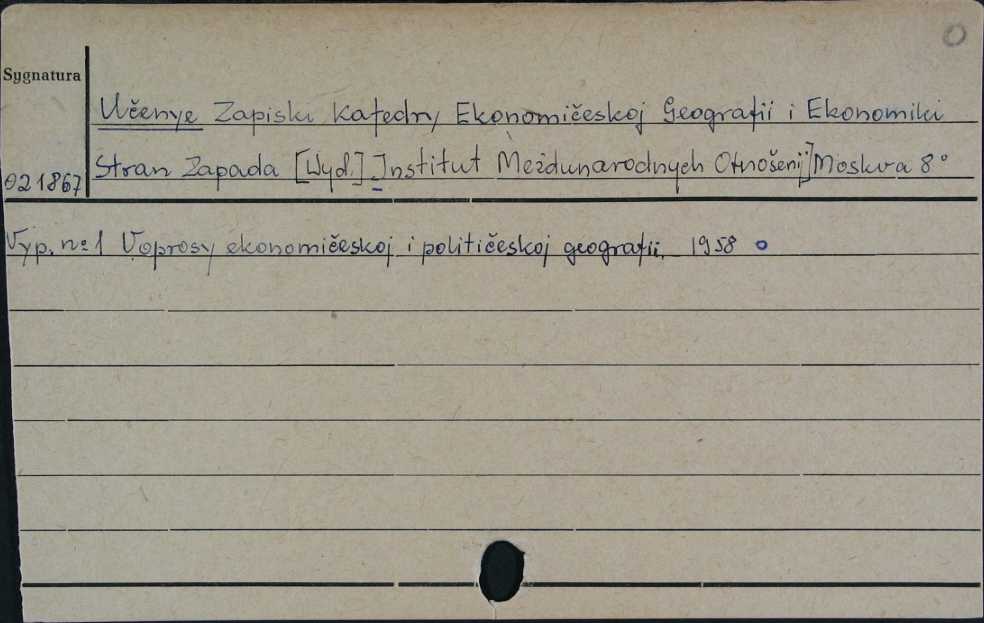 O
Sygnatura
Učenye Zapiski Katedry Ekonomičeskoj Geografii i Ekonomiki
Stran Zapada [Wyd.] Institut Meždunarodnych Otnošenij] Moskva 8°
021867
Vyp. nº 1 Voprosy ekonomičeskoj i političeskoj geografii. 1958 o